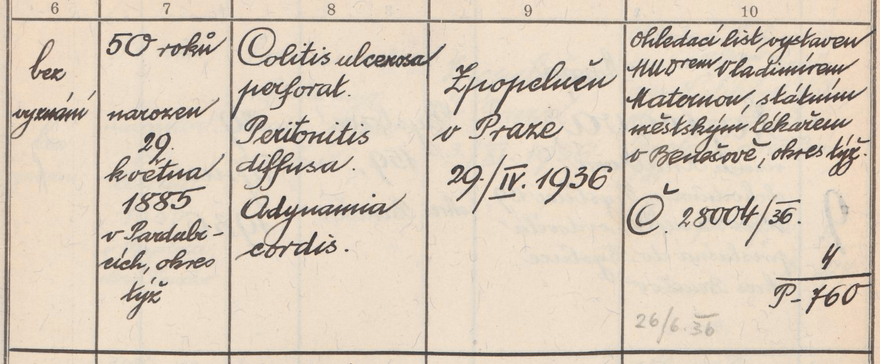 6
7
8
9
10
bez
vyznání
50 roků
narozen
29.
května
1885
v Pardubi-
cích, okres
týž
Colitis ulcerosa
perforat.
Peritonitis
diffusa.
Adynamia
cordis.
Zpopelněn
v Praze
29./IV. 1936
Ohledací list vystaven
MUDrem Vladimírem
Maternou, státním
městským lékařem
v Benešově, okres týž.
Č. 28004/36.
4
P-760
26/6.36